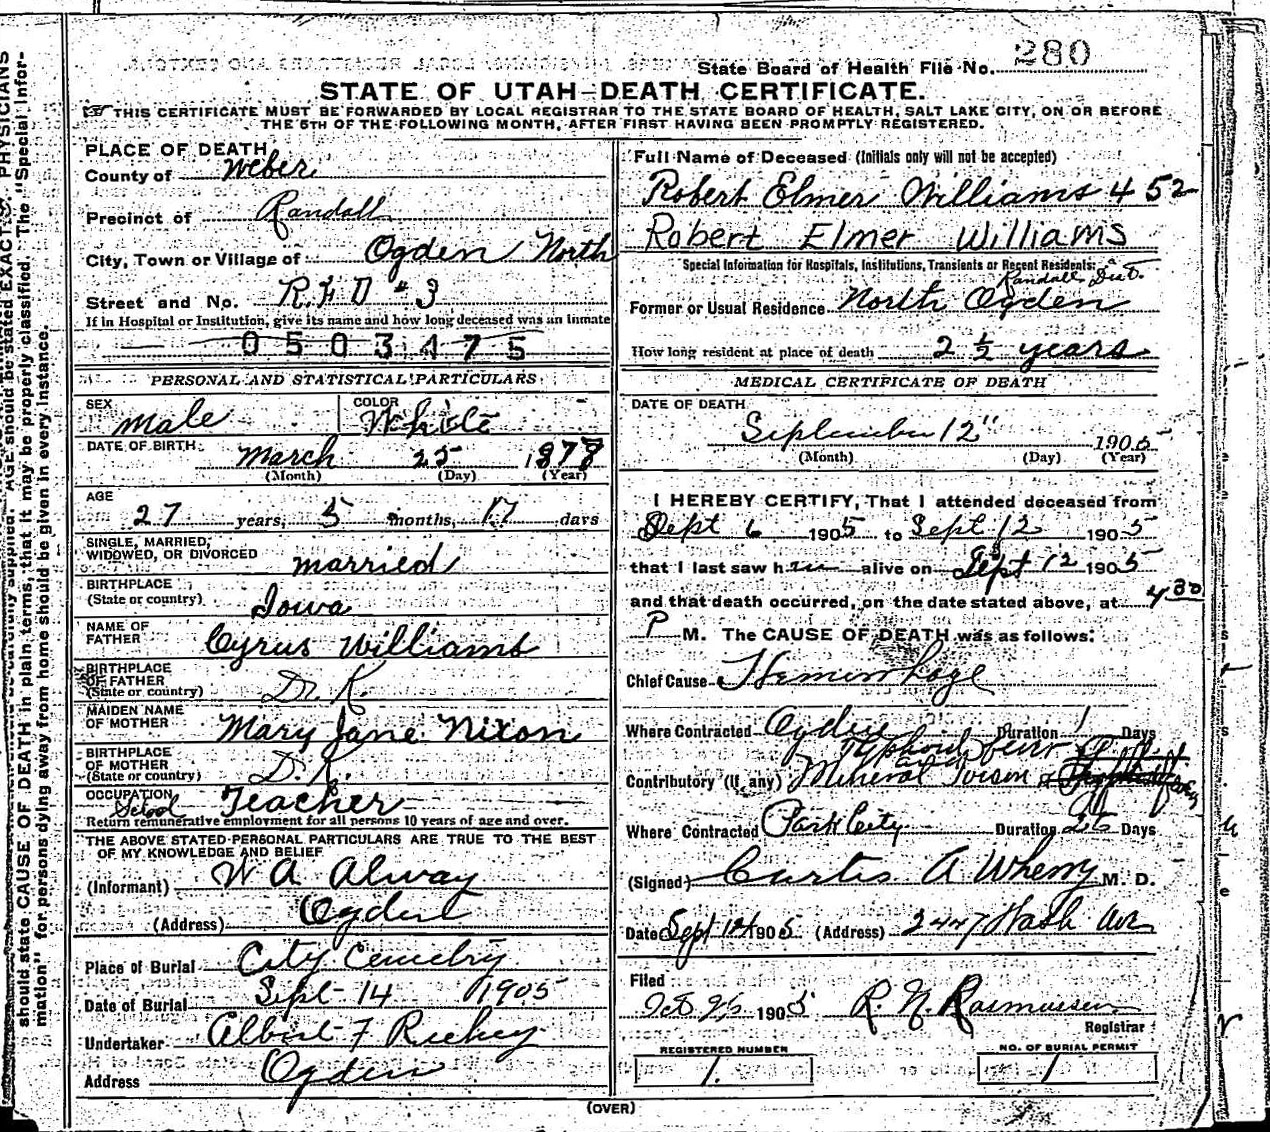 State Board of Health File No. 280
STATE OF UTAH-DEATH CERTIFICATE.
THIS CERTIFICATE MUST BE FORWARDED BY LOCAL REGISTRAR TO THE STATE BOARD OF HEALTH, SALT LAKE CITY, ON OR BEFORE
THE 5TH OF THE FOLLOWING MONTH, AFTER FIRST HAVING BEEN PROMPTLY REGISTERED.
PLACE OF DEATH
County of Weber
Precinct of Randall
City, Town or Village of Ogden North
Street and No. R.F.D - 3
If in Hospital or Institution, give its name and how long deceased was an inmate
0503475
PERSONAL AND STATISTICAL PARTICULARS
SEX Male COLOR White
DATE OF BIRTH March 25 1878
(Month) (Day) (Year)
AGE
27 years, 5 months, 17 days
SINGLE, MARRIED,
WIDOWED, OR DIVORCED married
BIRTHPLACE
(State or country) Iowa
NAME OF
FATHER Cyrus Williams
BIRTHPLACE
OF FATHER
(State or country) D. K.
MAIDEN NAME
OF MOTHER Mary Jane Nixon
BIRTHPLACE
OF MOTHER
(State or country) D. K.
OCCUPATION
School Teacher
Return remunerative employment for all persons 10 years of age and over.
THE ABOVE STATED PERSONAL PARTICULARS ARE TRUE TO THE BEST
OF MY KNOWLEDGE AND BELIEF
(Informant) W A Alway
(Address) Ogden
Place of Burial City Cemetry
Date of Burial Sept 14 1905
Undertaker Albert F Richey
Address Ogden
Full Name of Deceased (Initials only will not be accepted)
Robert Elmer Williams 452
Robert Elmer Williams
Special Information for Hospitals, Institutions, Transients or Recent Residents:
Randall Dist.
Former or Usual Residence North Ogden
How long resident at place of death 2 ½ years
MEDICAL CERTIFICATE OF DEATH
DATE OF DEATH
September 12" 1905
(Month) (Day) (Year)
I HEREBY CERTIFY, That I attended deceased from
Sept 6 1905 to Sept 12 1905
that I last saw him alive on Sept 12 1905
and that death occurred, on the date stated above, at 4 30
P M. The CAUSE OF DEATH was as follows:
Chief Cause Hemorrhage
Where Contracted Ogden Duration 1 Days
Typhoid fever
Contributory (if any) Mineral Poison
Where Contracted Park City Duration Days
(Signed) Curtis A Wherry M. D.
Date Sept 12 1905 (Address) 2447 Wash Ave
Filed
1905 R. N. Rasmussen
Registrar
REGISTERED NUMBER NO. OF BURIAL PERMIT
1. 1
(OVER)
AGE should be stated EXACTLY. PHYSICIANS
should state CAUSE OF DEATH in plain terms, that it may be properly classified. The "Special Infor-
mation" for persons dying away from home should be given in every instance.